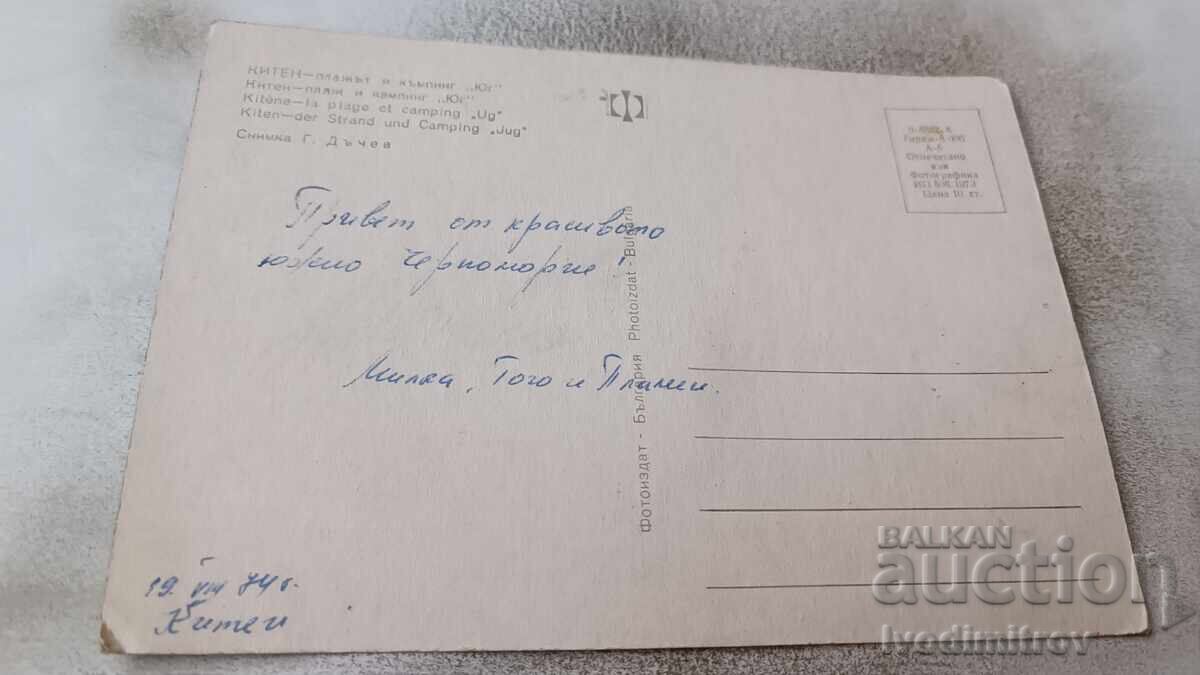 КИТЕН—плажът и къмпинг „Юг"
Китен—пляж и кемпинг „Юг"
Kitène—la plage et camping „Ug"
Kiten—der Strand und Camping „Jug"
Снимка Г. Дъчев
Отпечатано
във
Фотографика
Цена 10 ст.
Привет от красивото
южно Черноморие!
Милка, Того и Пламен.
19. VIII 74 г.
Китен
Фотоиздат - България Photoizdat - Bulgaria
BALKAN
auction
Ivedimitrov